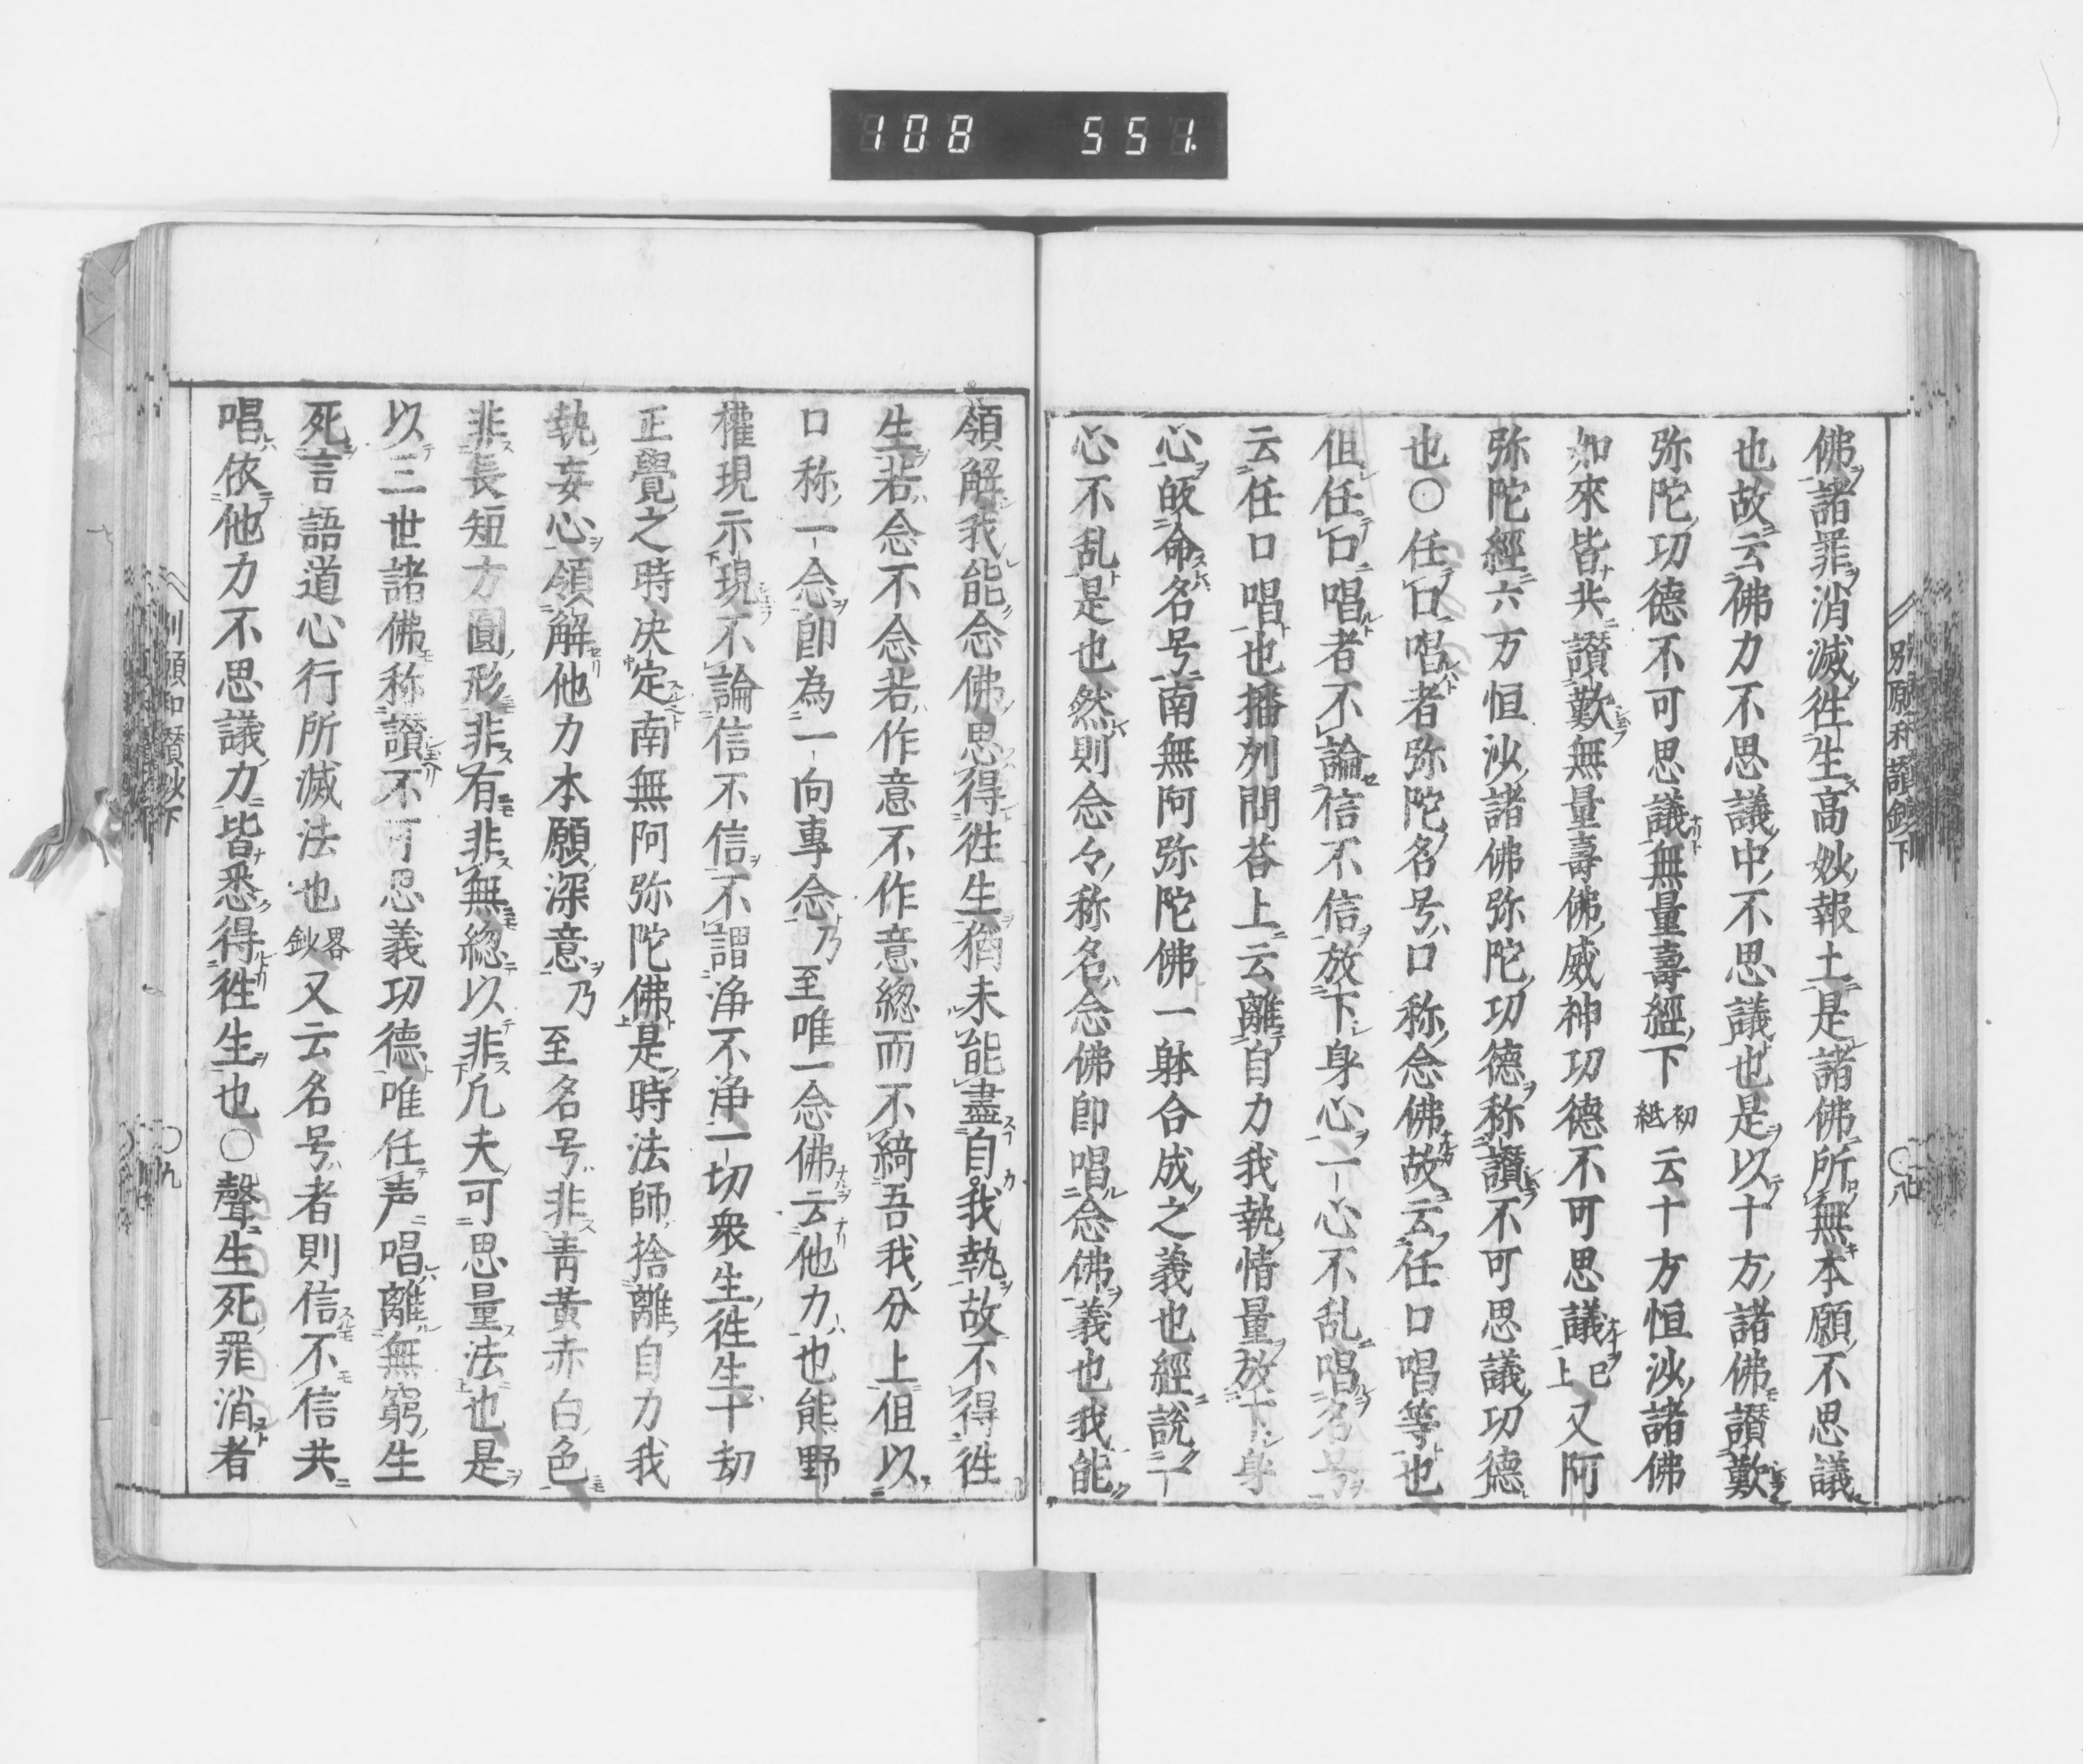 108 551
別願和讃鈔下 ○八
佛諸罪消滅徃生高妙報土是諸佛所無本願不思議
也故云佛力不思議中不思議也是以十方諸佛讃歎
弥陀功德不可思議無量壽經下初紙云十方恒沙諸佛
如來皆共讃歎無量壽佛威神功德不可思議已上又阿
弥陀經六方恒沙諸佛弥陀功德称讃不可思議功德
也○任口唱者弥陀名号口称念佛故云任口唱等也
但任口唱者不論信不信放下身心一心不乱唱名号
云任口唱也播刕問荅上云離自力我執情量放下身
心皈命名号南無阿弥陀佛一躰合成之義也經說一
心不乱是也然則念々称名念佛即唱念佛義也我能
領解我能念佛思得徃生猶未能盡自我執故不得徃
生若念不念若作意不作意総而不綺吾我分上但以
口称一念即為一向專念乃至唯一念佛云他力也熊野
權現示現不論信不信不謂淨不淨一切衆生徃生十劫
正覺之時决定南無阿弥陀佛是時法師捨離自力我
執妄心領解他力本願深意乃至名号非青黃赤白色
非長短方圓形非有非無総以非凢夫可思量法也是
以三世諸佛称讃不可思義功德唯任声唱離無窮生
死言語道心行所滅法也畧鈔又云名号者則信不信共
唱依他力不思議力皆悉得徃生也○聲生死罪消者
願和讃鈔下 ○九